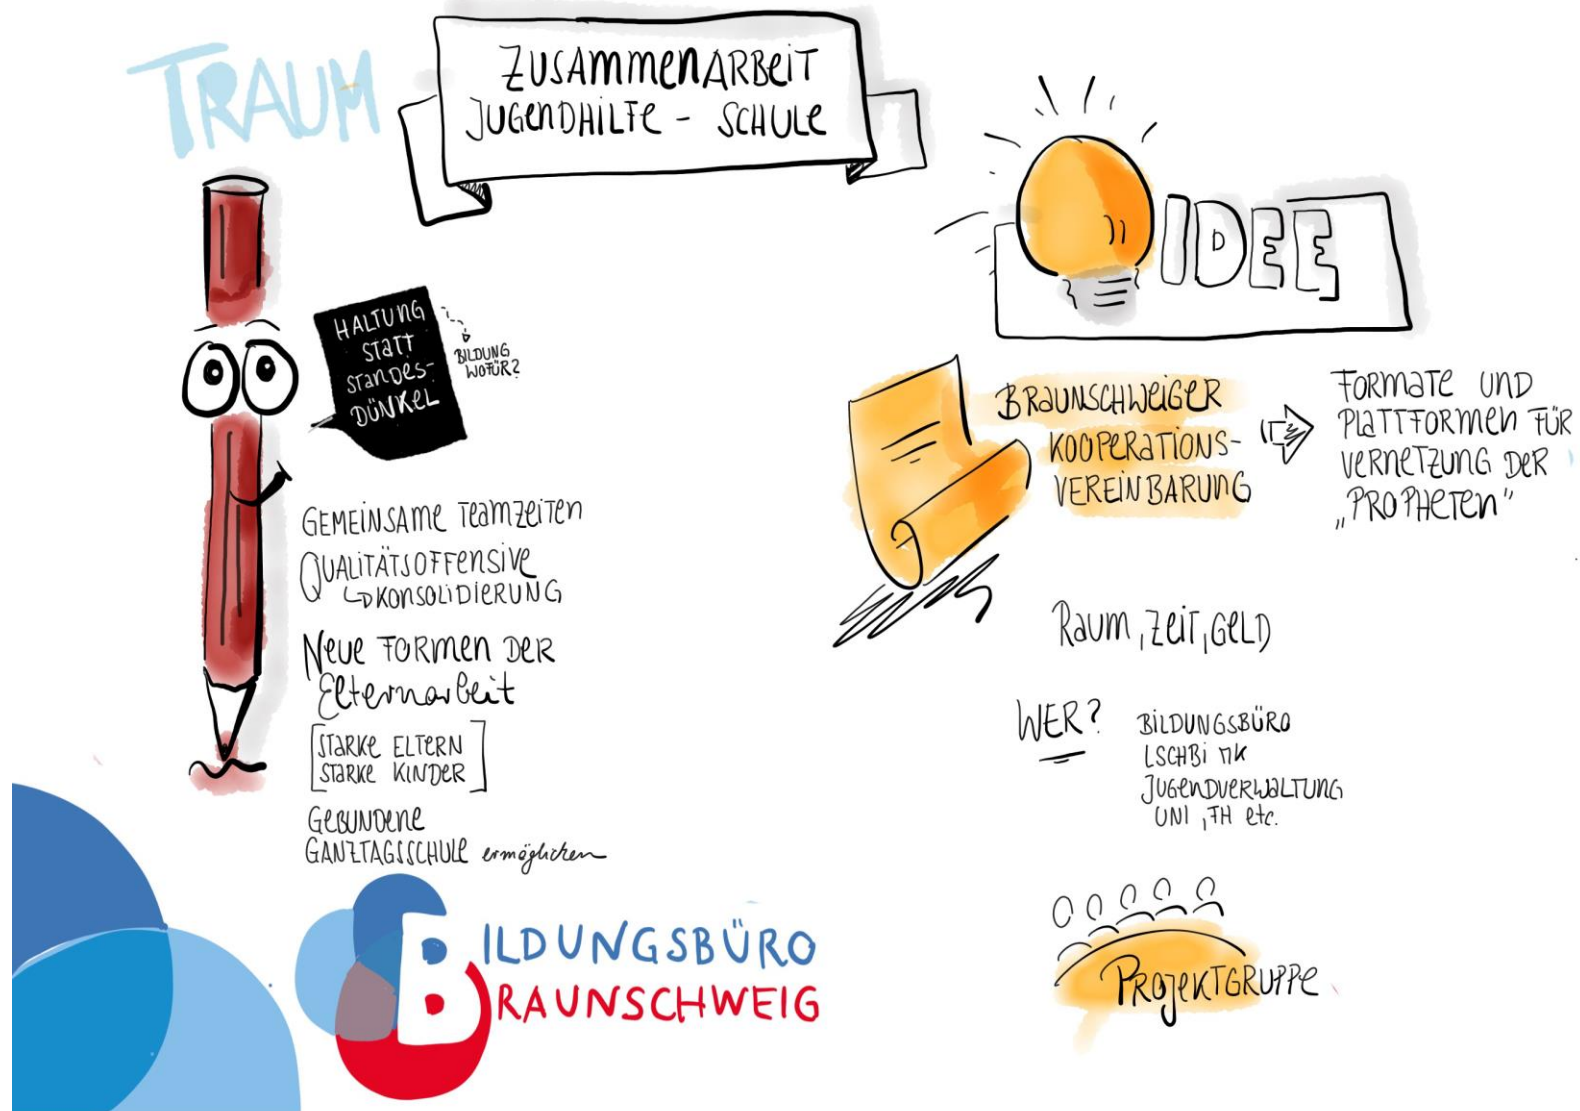 TRAUM
ZUSAMMENARBEIT
JUGENDHILFE - SCHULE
HALTUNG
STATT
STANDES-
DÜNKEL
BILDUNG
WOFÜR?
GEMEINSAME TEAMZEITEN
QUALITÄTSOFFENSIVE
KONSOLIDIERUNG
NEUE FORMEN DER
Elternarbeit
[STARKE ELTERN
STARKE KINDER]
GEBUNDENE
GANZTAGSSCHULE ermöglichen
IDEE
BRAUNSCHWEIGER
KOOPERATIONS-
VEREINBARUNG
FORMATE UND
PLATTFORMEN FÜR
VERNETZUNG DER
„PROPHETEN"
RAUM, ZEIT, GELD
WER?
BILDUNGSBÜRO
LSCHB; MK
JUGENDVERWALTUNG
UNI, FH etc.
PROJEKTGRUPPE
BILDUNGSBÜRO
BRAUNSCHWEIG